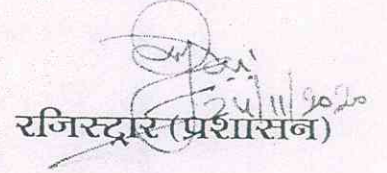 24/11/2020
रजिस्ट्रार (प्रशासन)